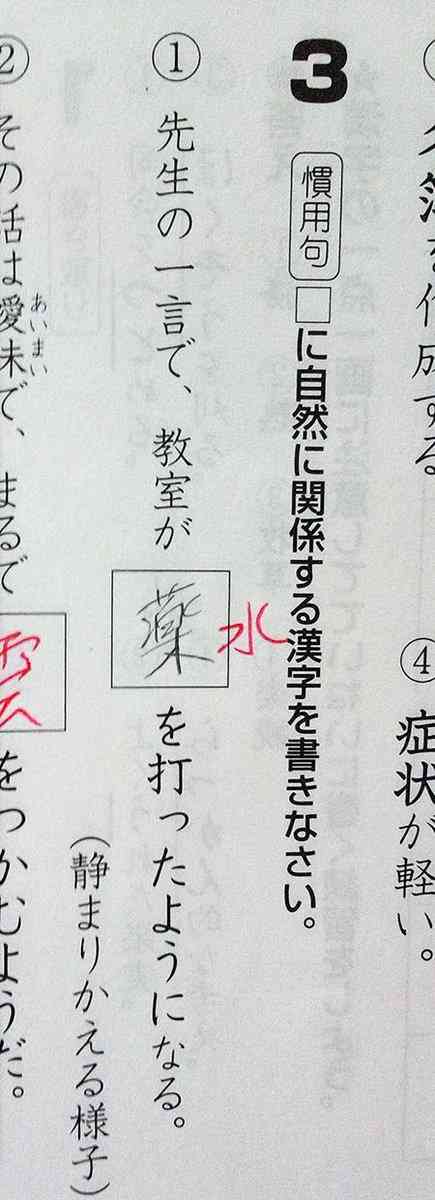 名簿を作成する
④ 症状が軽い。
3 慣用句 □に自然に関係する漢字を書きなさい。
① 先生の一言で、教室が薬を打ったようになる。
水
（静まりかえる様子）
② その話は曖昧で、まるで雲をつかむようだ。
あいまい